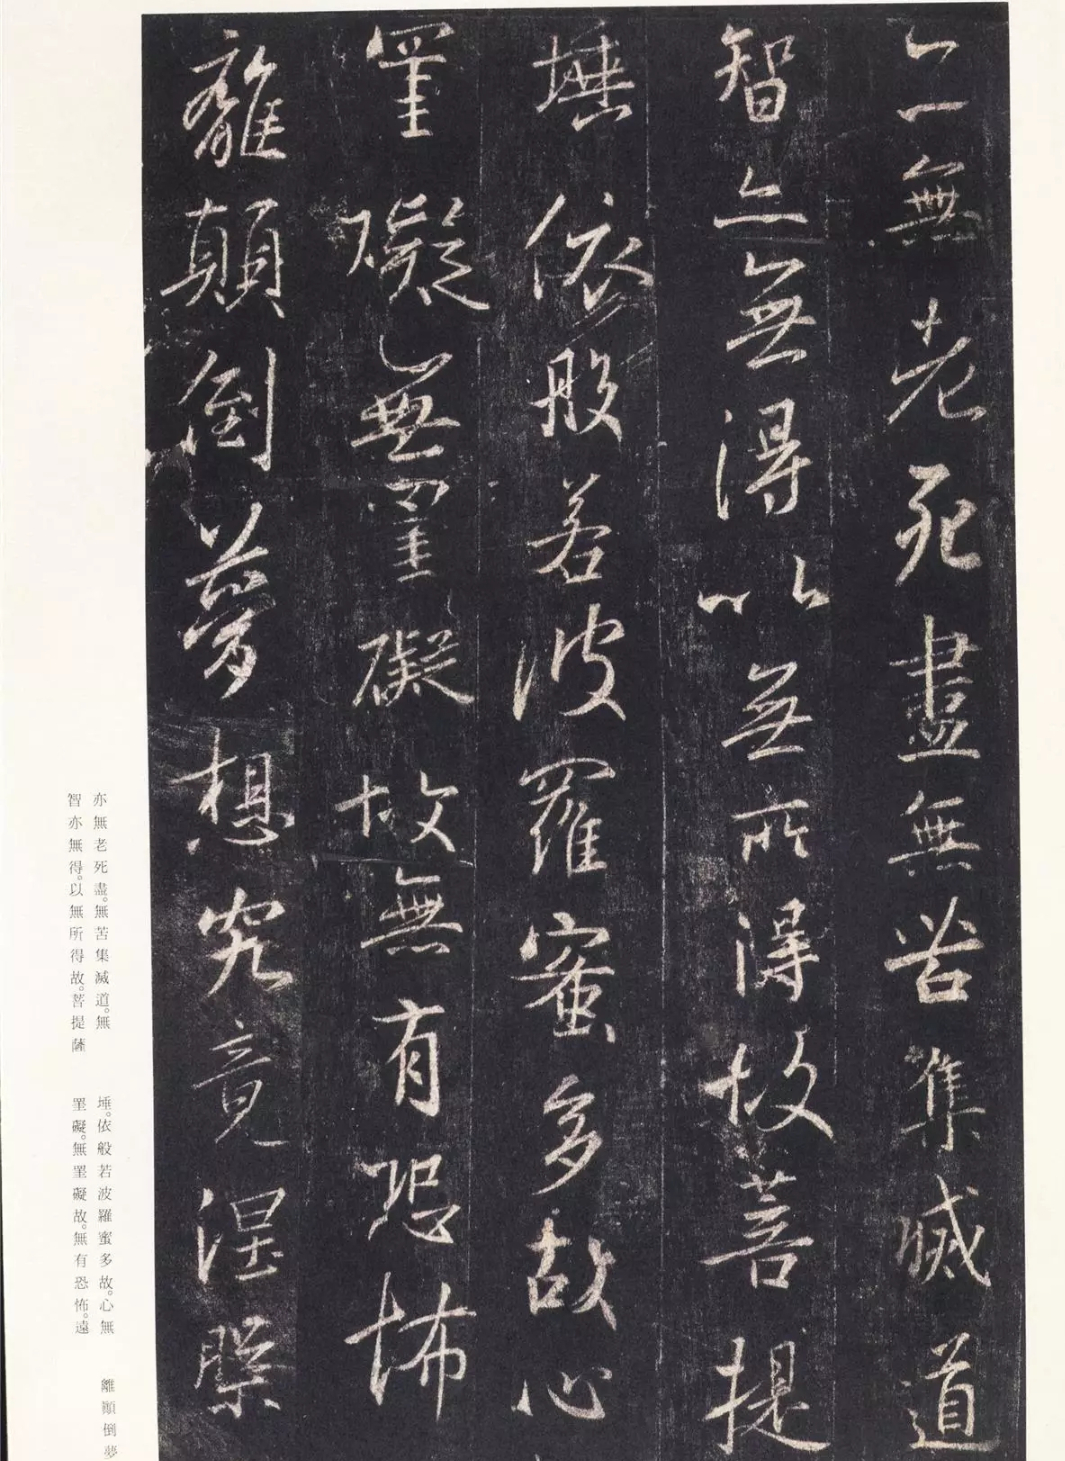 亦無老死盡無苦集滅道
智亦無得以無所得故菩提
埵依般若波羅蜜多故心
罣礙無罣礙故無有恐怖
離顛倒夢想究竟涅槃
亦無老死盡。無苦集滅道。無
智亦無得。以無所得故。菩提薩
埵。依般若波羅蜜多故。心無
罣礙。無罣礙故。無有恐怖。遠
離顛倒夢